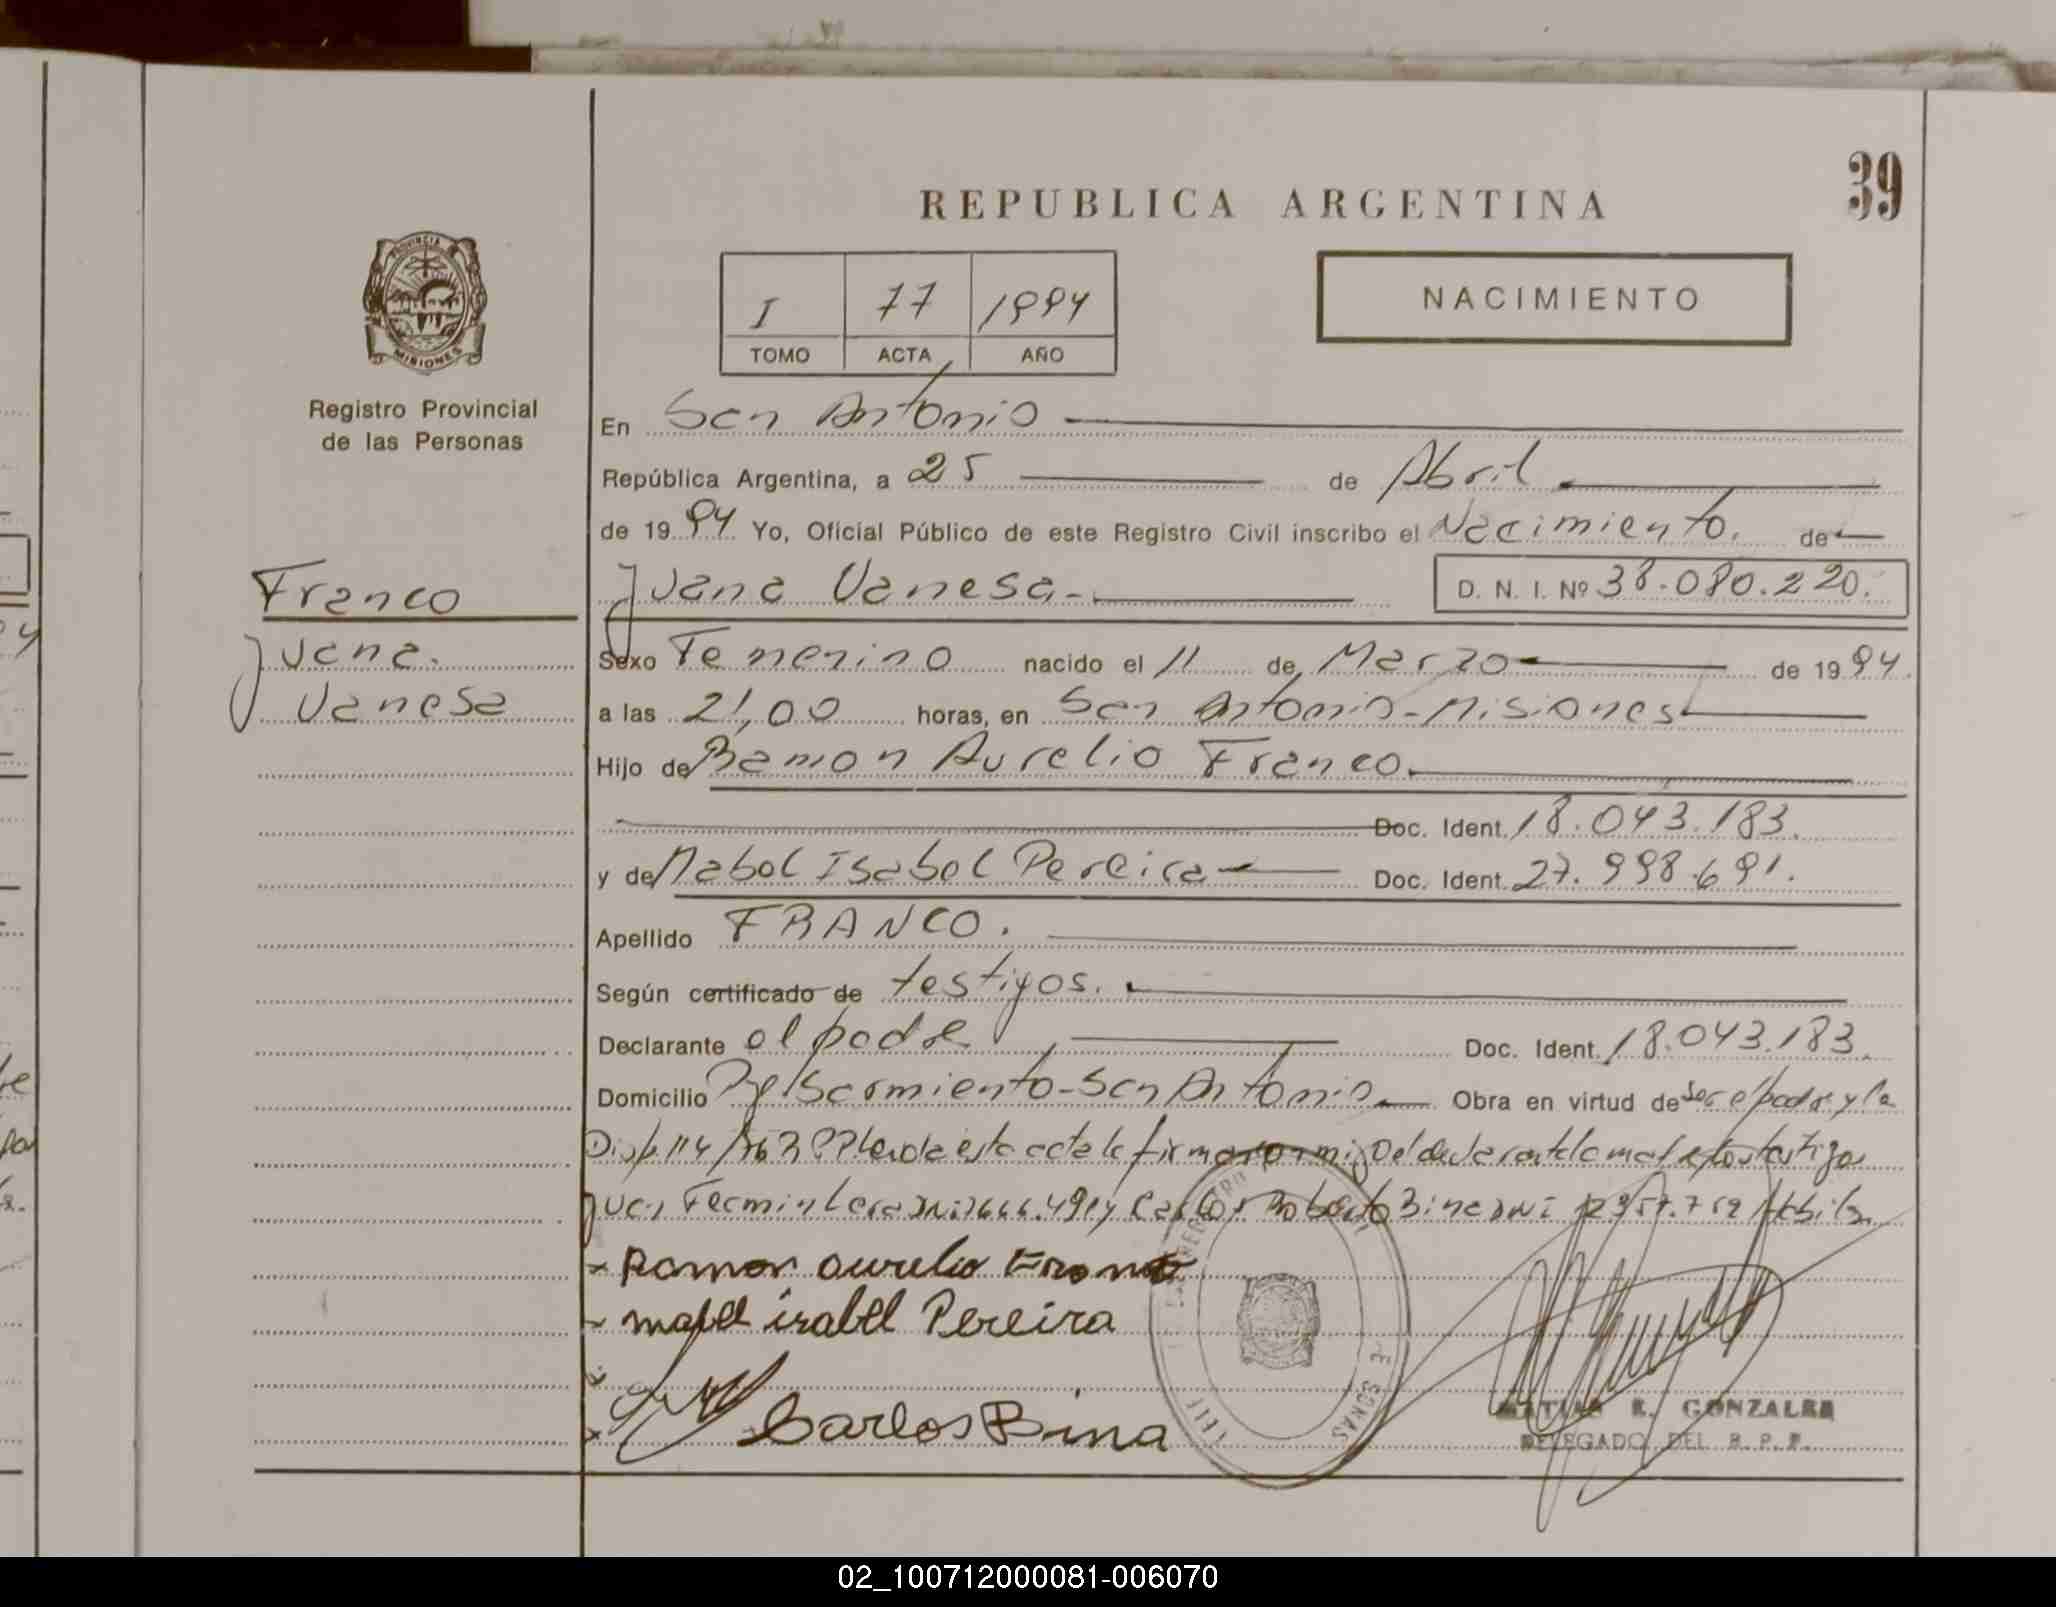 39
REPUBLICA ARGENTINA
PROVINCIA DE
MISIONES
I 77 1994
TOMO ACTA AÑO
NACIMIENTO
Registro Provincial
de las Personas
En San Antonio
República Argentina, a 25 de Abril
de 1994 Yo, Oficial Público de este Registro Civil inscribo el Nacimiento. de
Franco
Juana Vanesa - D. N. I. Nº 38.080.220.
Juana.
Vanesa
Sexo Femenino nacido el 11 de Marzo de 1994.
a las 21,00 horas, en San Antonio - Misiones
Hijo de Ramon Aurelio Franco.
Doc. Ident. 18.043.183.
y de Mabel Isabel Pereira Doc. Ident. 27.998.691.
Apellido FRANCO.
Según certificado de testigos.
Declarante el padre Doc. Ident. 18.043.183.
Domicilio Sarmiento - San Antonio Obra en virtud de ser el padre y la
Disp. 114/ esta acta la firman por mi el declarante la madre y los testigos
Juan Fermin y Carlos Roberto Bina DNI
x Ramon Aurelio Franco
x mabel isabel Pereira
x
x Carlos Bina
MATIAS R. GONZALEZ
DELEGADO DEL R. P. P.
02_100712000081-006070